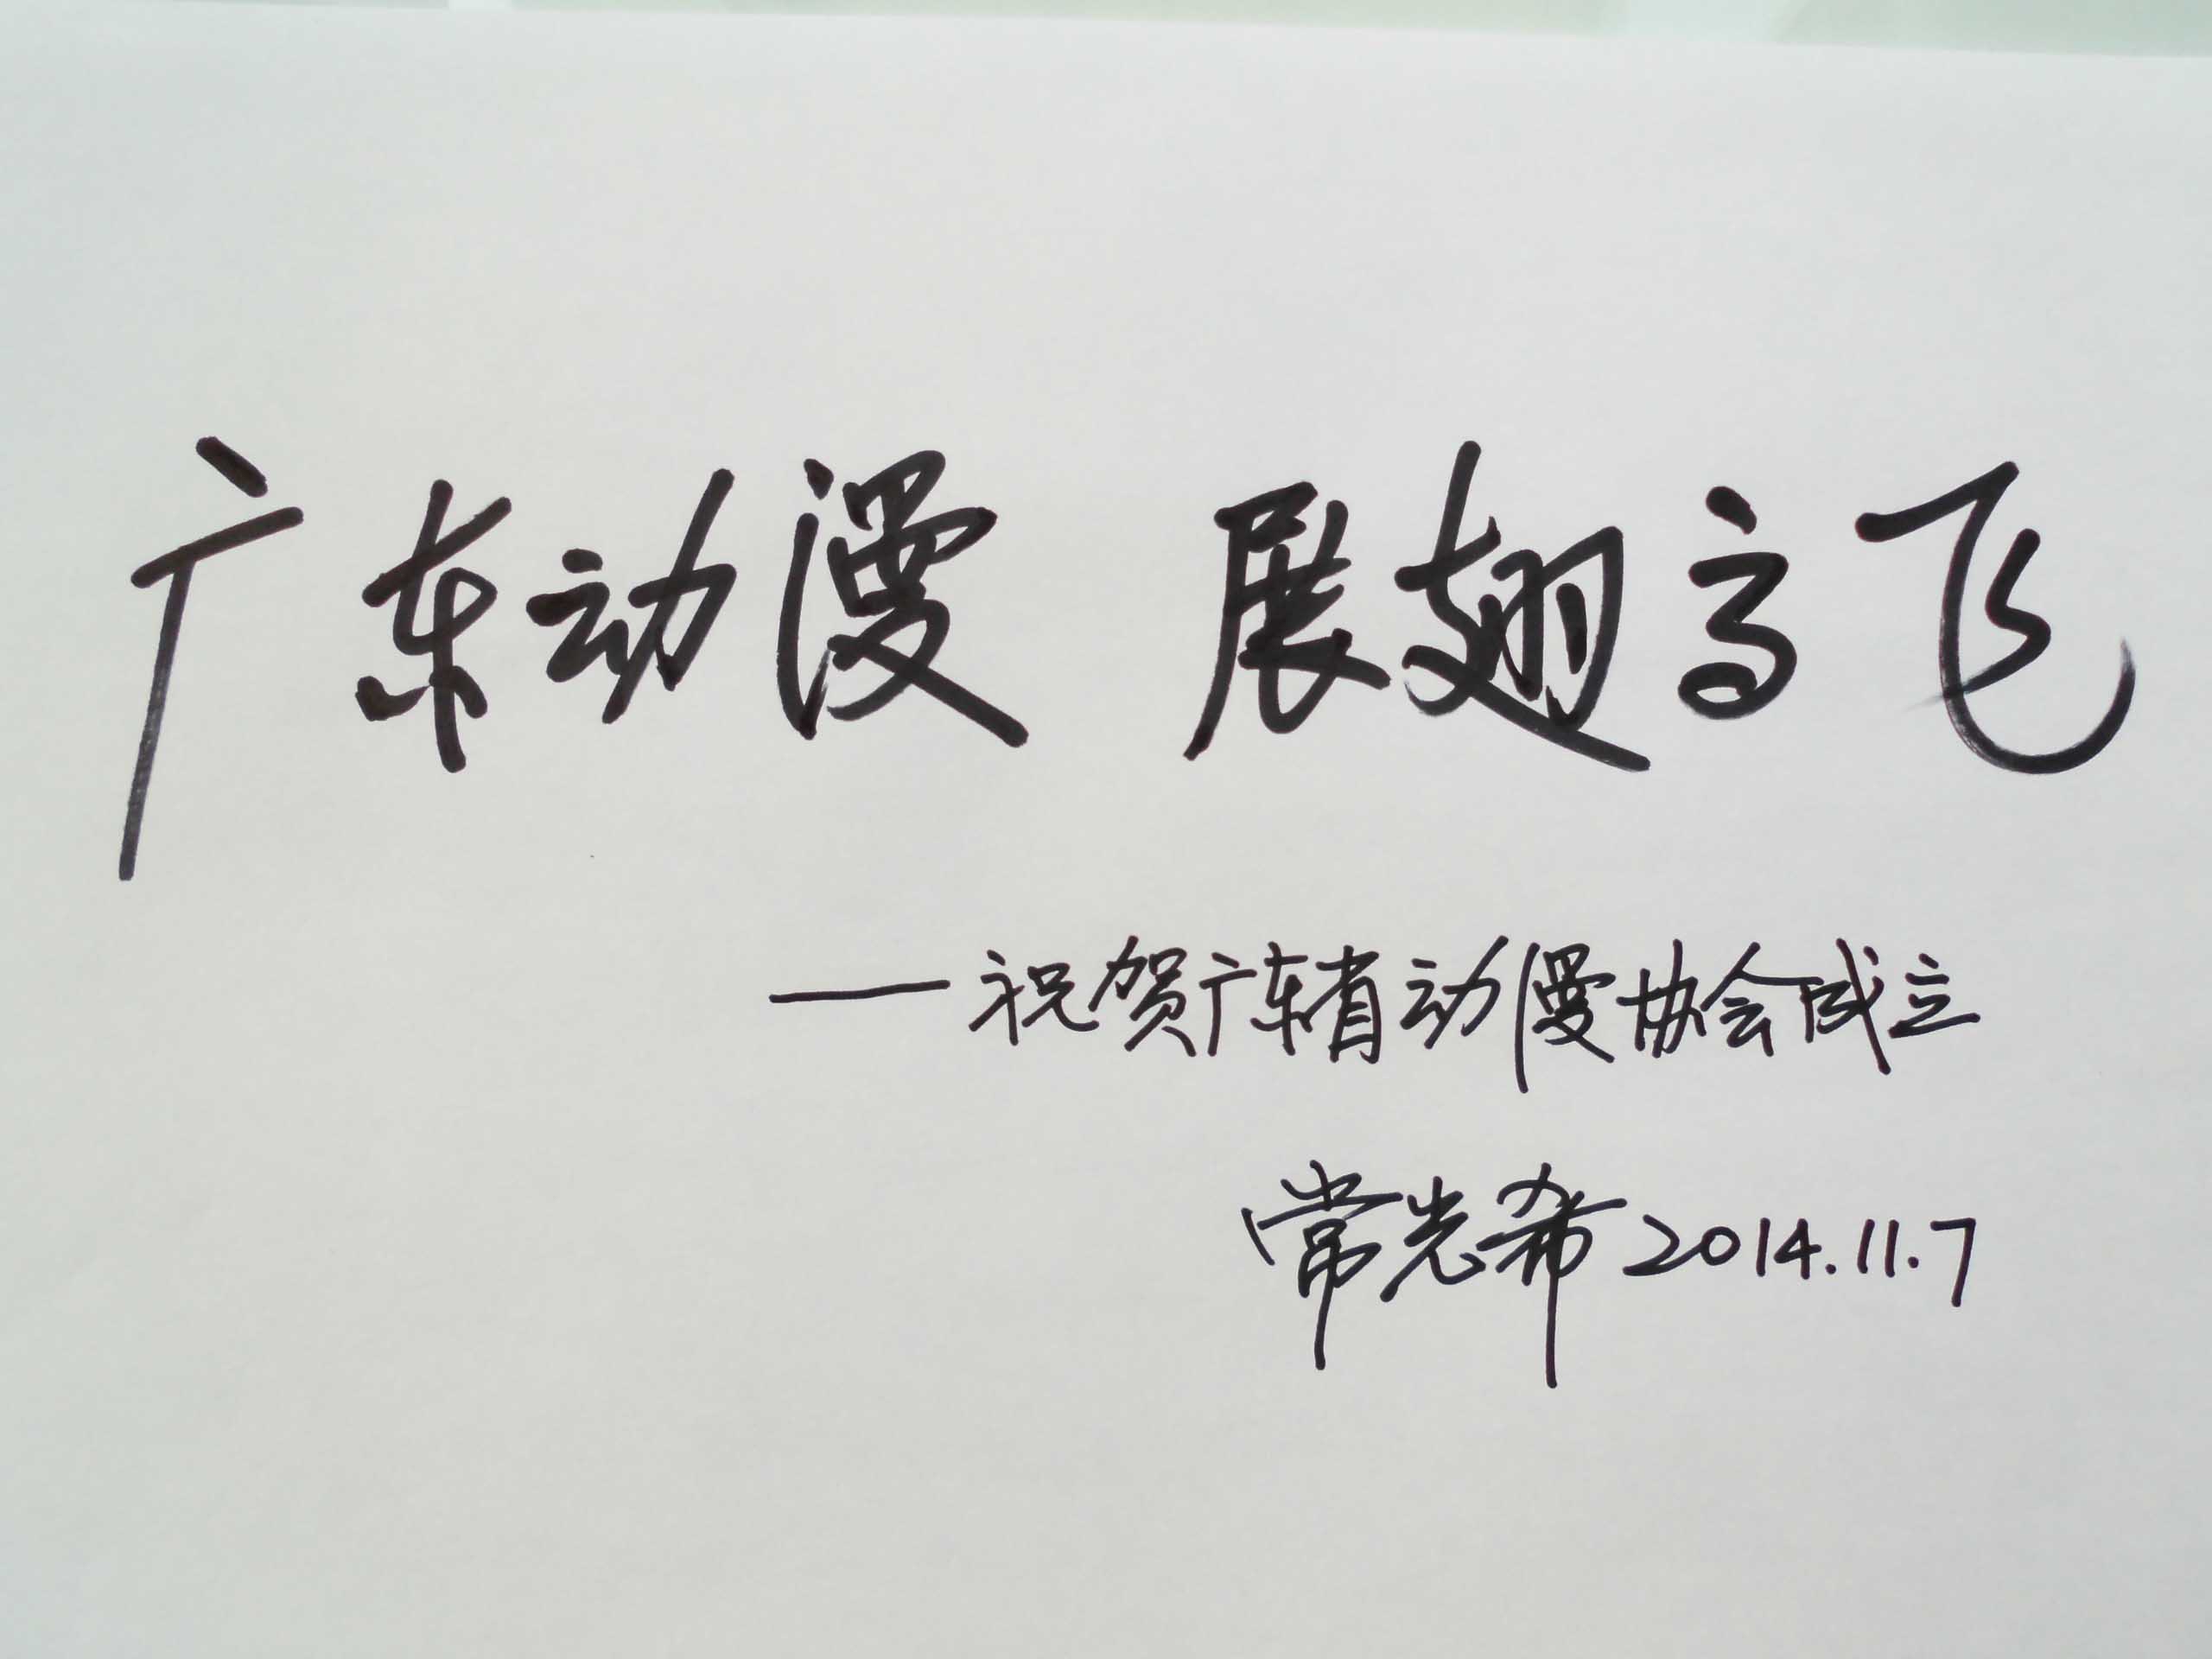 广东动漫 展翅高飞
——祝贺广东省动漫协会成立
常光希 2014.11.7